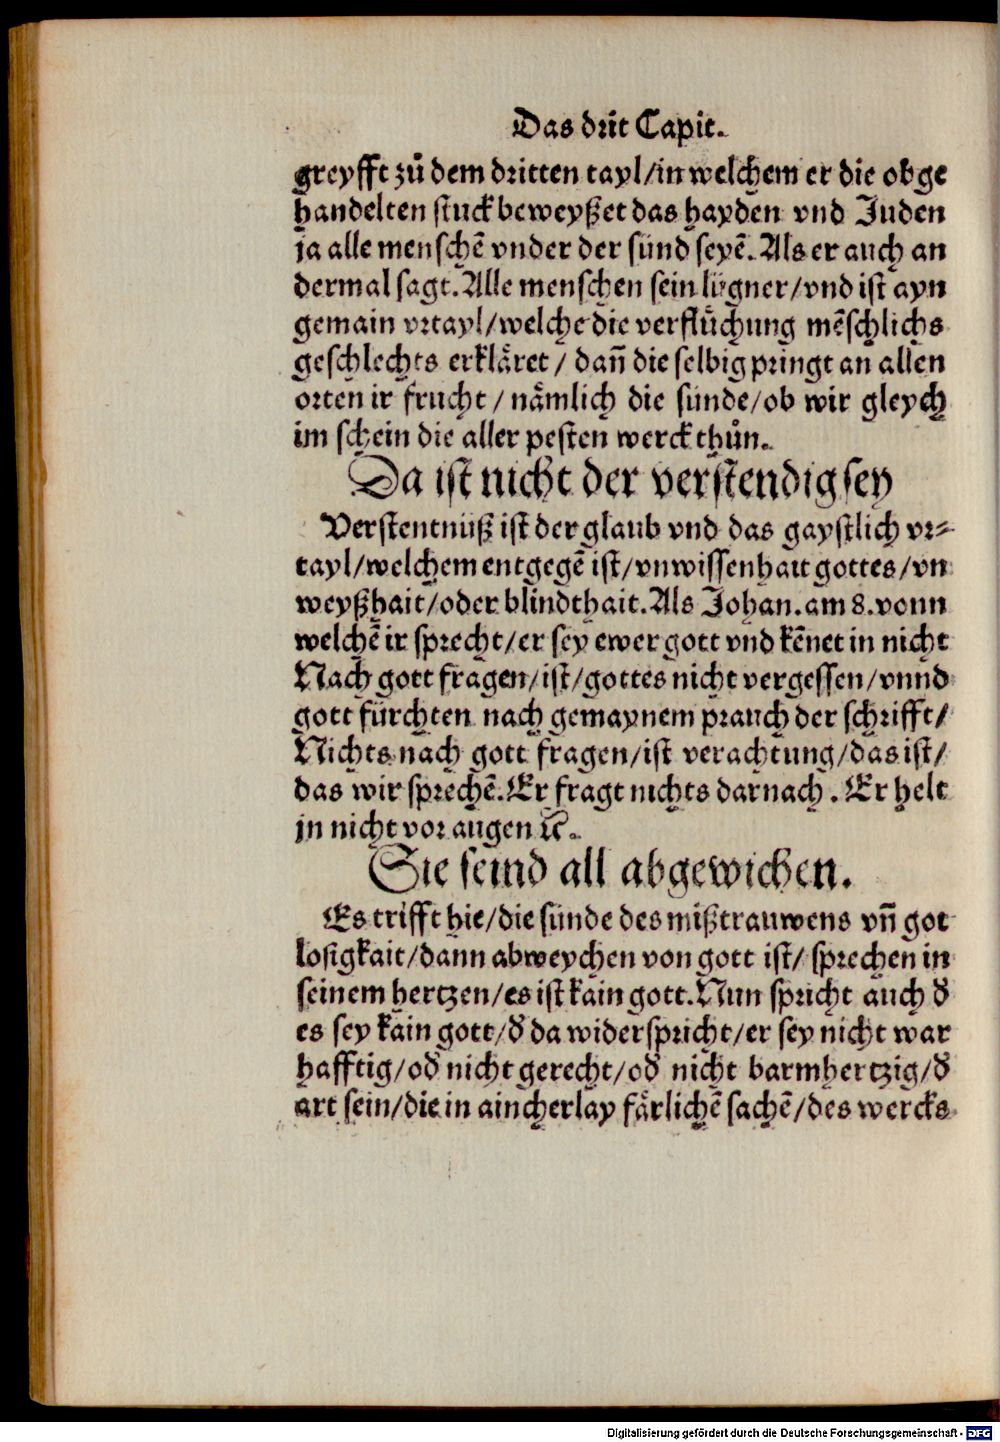 Das drit Capit.
greyfft zů dem dritten tayl/in welchem er die obge
handelten stuck beweyßet das hayden vnd Juden
ja alle menschē vnder der sünd seyē. Als er auch an
dermal sagt. Alle menschen sein lügner/vnd ist ayn
gemain vrtayl/welche die verflůchung mēschlichs
geschlechts erkläret/ dañ die selbig pringt an allen
orten ir frucht/ nämlich die sünde/ob wir gleych
im schein die aller pesten werck thůn.
Da ist nicht der verstendig sey
Verstentnüß ist der glaub vnd das gaystlich vr⸗
tayl/welchem entgegē ist/vnwissenhait gottes/vn
weyßhait/oder blindthait. Als Johan. am 8. vonn
welchē ir sprecht/er sey ewer gott vnd kēnet in nicht
Nach gott fragen/ist/gottes nicht vergessen/vnnd
gott fürchten nach gemaynem prauch der schrifft/
Nichts nach gott fragen/ist verachtung/das ist/
das wir sprechē. Er fragt nichts darnach. Er helt
jn nicht vor augen ꝛc.
Sie seind all abgewichen.
Es trifft hie/die sünde des mißtrauwens vñ got
losigkait/dann abweychen von gott ist/ sprechen in
seinem hertzen/es ist kain gott. Nun spricht auch đ
es sey kain gott/đ da widerspricht/er sey nicht war
hafftig/ođ nicht gerecht/ođ nicht barmhertzig/đ
art sein/die in aincherlay färlichē sachē/des wercks
Digitalisierung gefördert durch die Deutsche Forschungsgemeinschaft - DFG